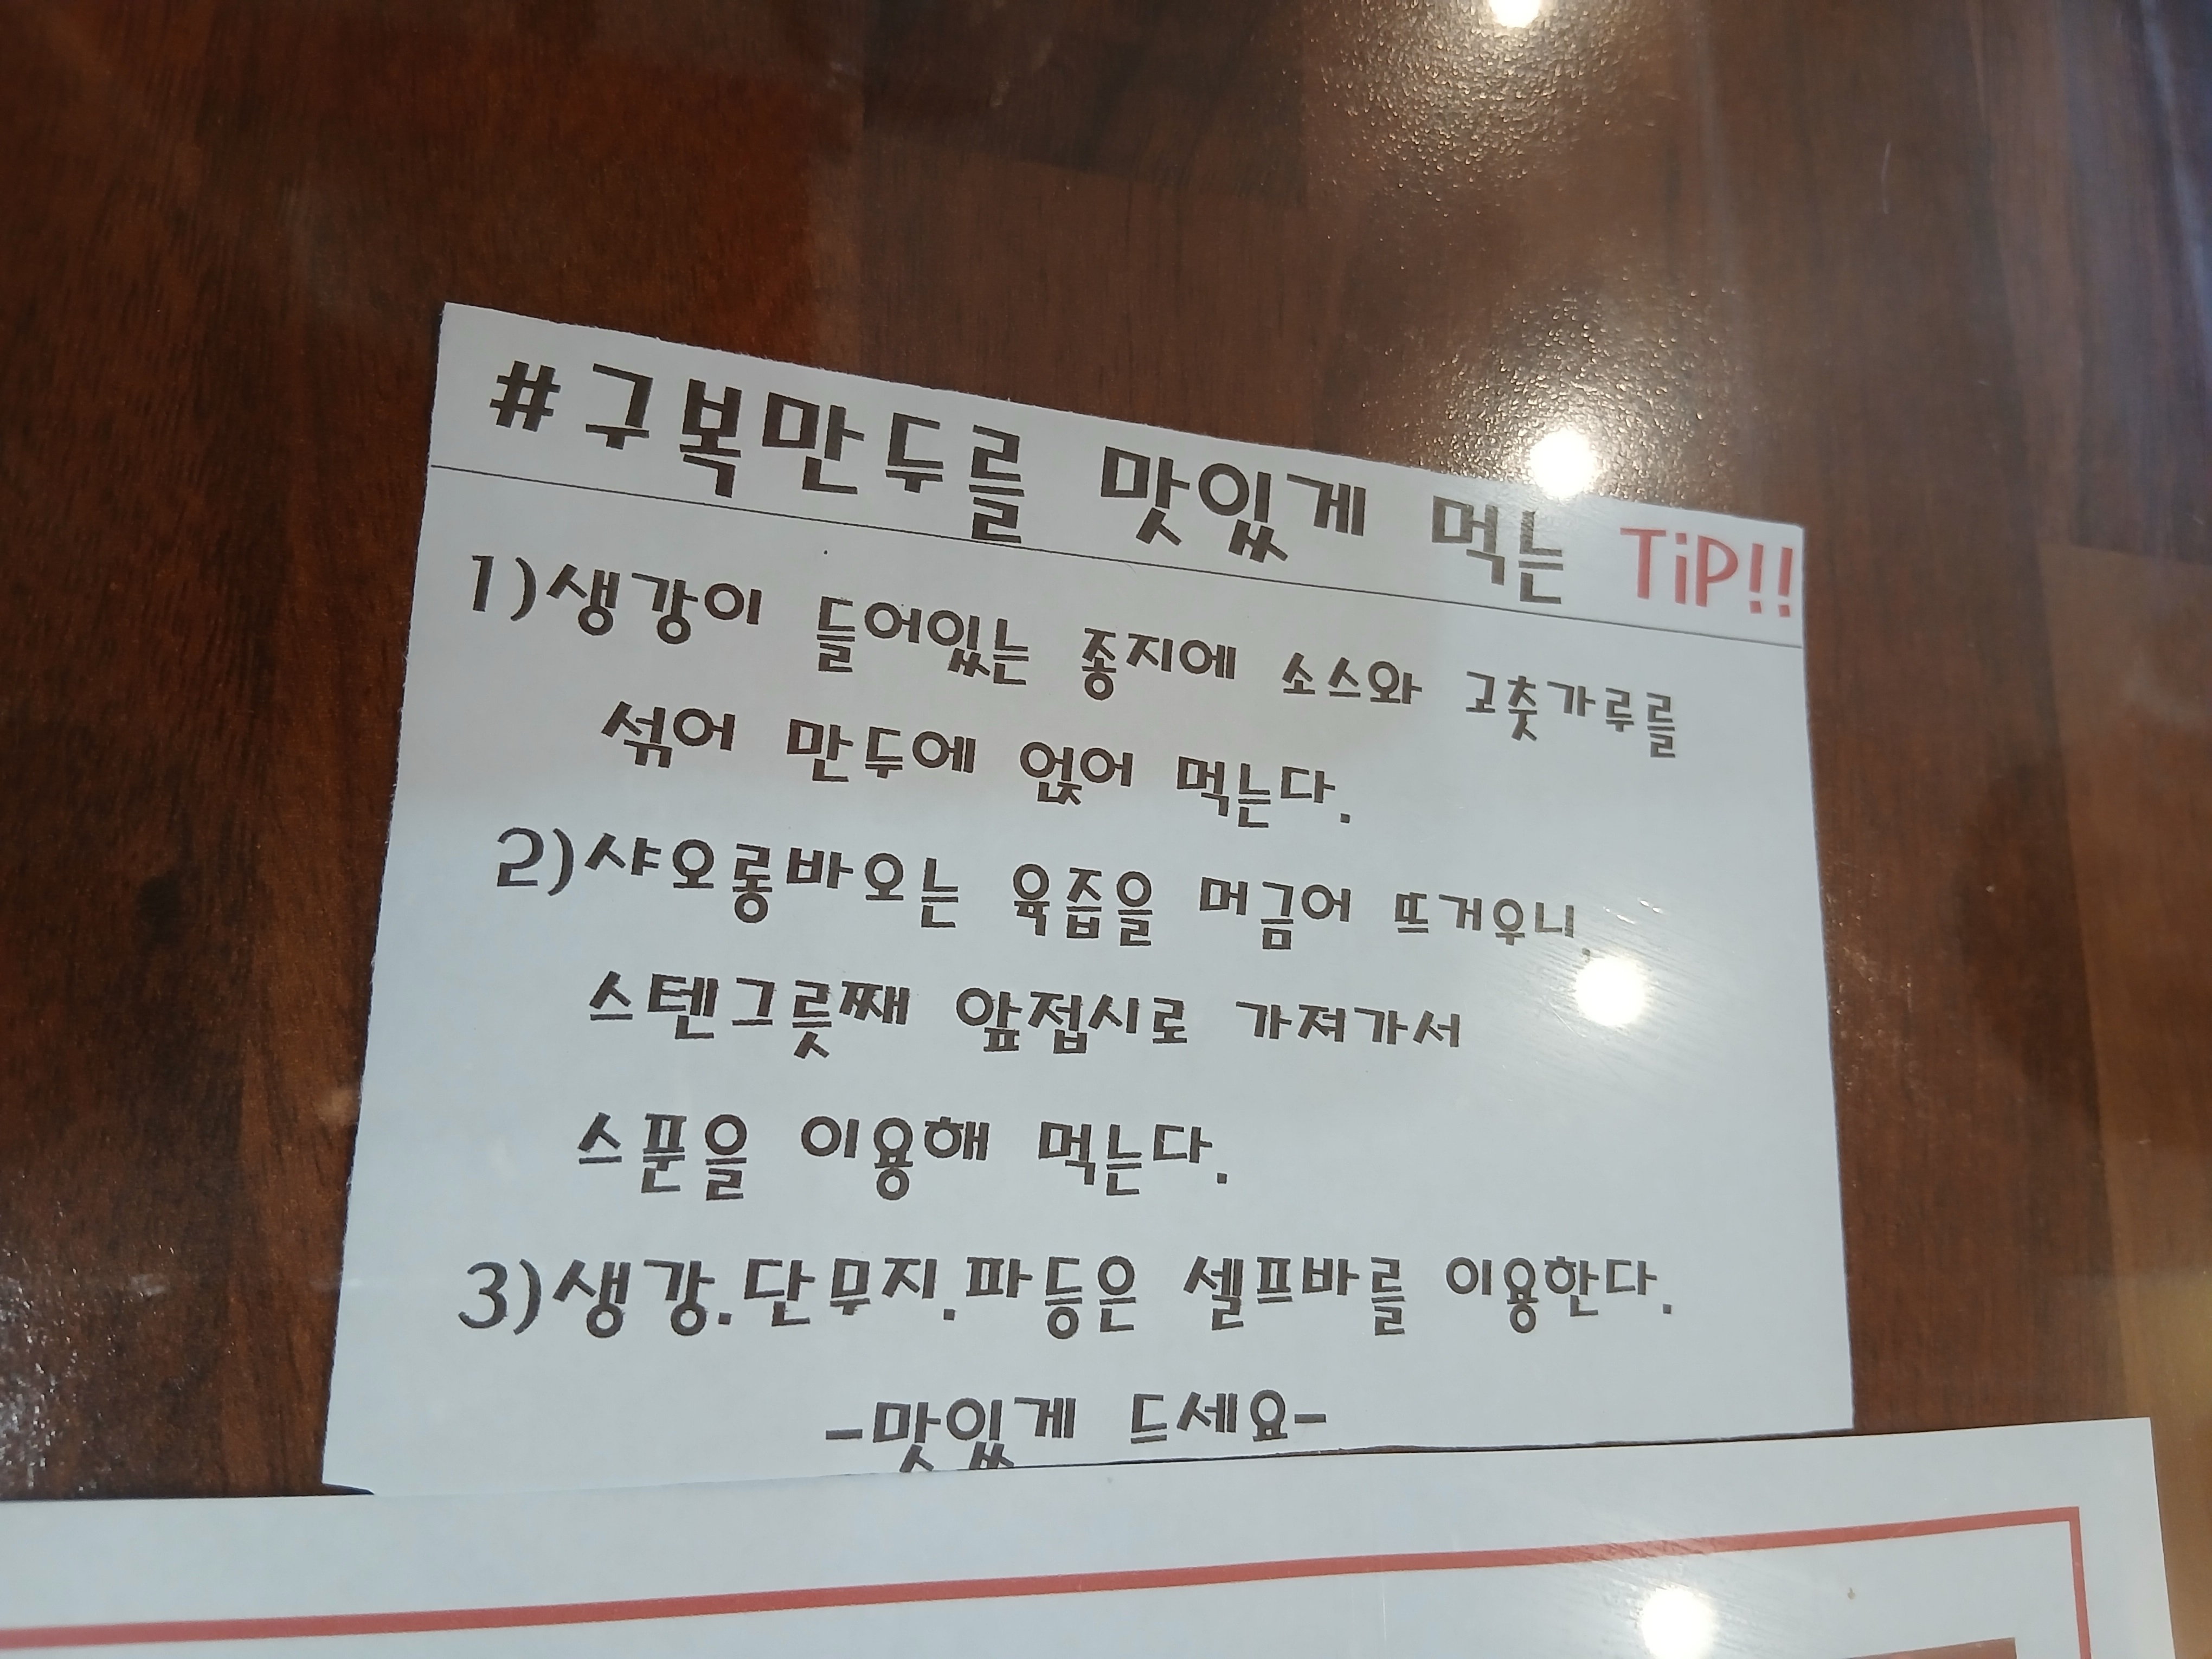 #구복만두를 맛있게 먹는 TiP!!
1)생강이 들어있는 종지에 소스와 고춧가루를
섞어 만두에 얹어 먹는다.
2)샤오롱바오는 육즙을 머금어 뜨거우니,
스텐그릇째 앞접시로 가져가서
스푼을 이용해 먹는다.
3)생강.단무지.파등은 셀프바를 이용한다.
-맛있게 드세요-